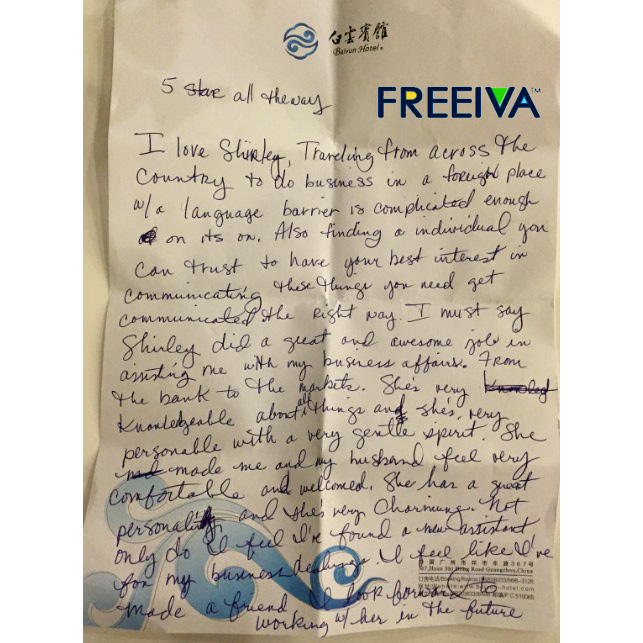 白雲賓館
Baiyun Hotel
FREEIVA™
5 Star all the way
I love Shirley, Traveling from across the
Country to do business in a foreign place
w/a language barrier is complicated enough
on its on. Also finding a individual you
can trust to have your best interest in
communicating these things you need get
communicated the right way. I must say
Shirley did a great and awesome job in
assisting me with my business affairs. From
the bank to the markets. She's very
knowledgeable about all things and she's very
personable with a very gentle spirit. She
made me and my husband feel very
comfortable and welcomed. She has a great
personality and she's very charming. Not
only do I feel I've found a new assistant
for my business dealings I feel like I've
made a friend I look forward to
working w/ her in the future
中国广州市环市东路367号
367, Huan Shi Dong Road Guangzhou, China